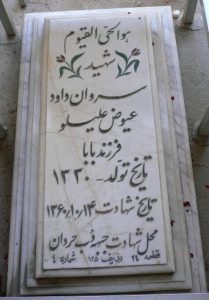 هو الحی القیوم
شهید
سروان داود
عیوض علیلو
فرزند بابا
تاریخ تولد - ۱۳۳۰
تاریخ شهادت ۱۳۶۰/۱۰/۱۴
محل شهادت جبهه غرب جروان
قطعه ۲۴ ردیف ۱۲۵ شماره ۴۰